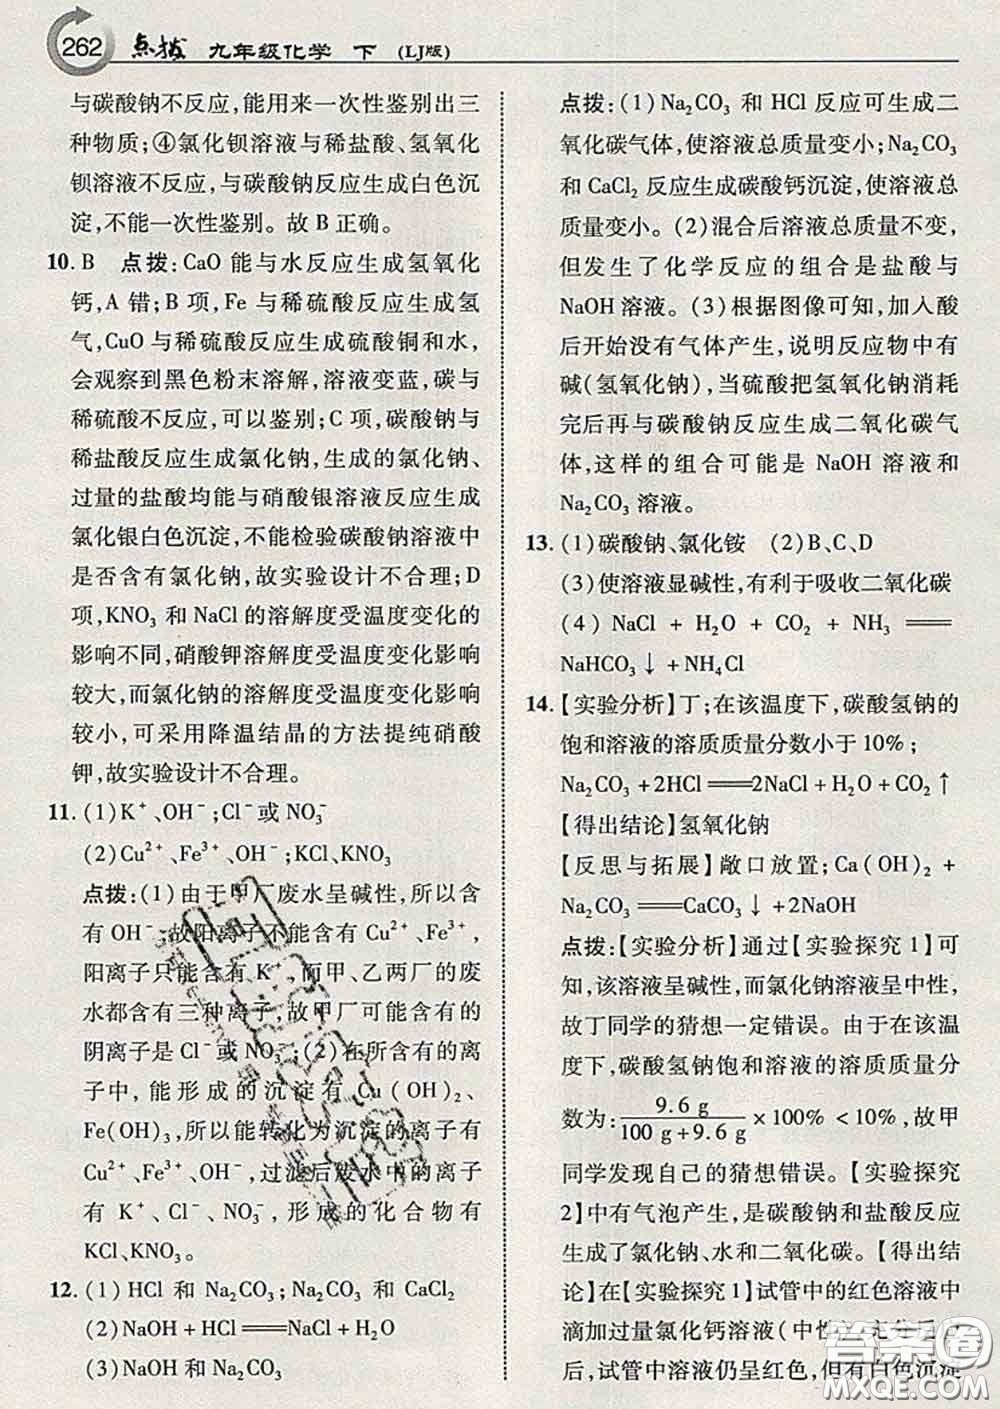 262 点拨 九年级化学 下 (LJ版)
与碳酸钠不反应,能用来一次性鉴别出三
种物质;④氯化钡溶液与稀盐酸、氢氧化
钡溶液不反应,与碳酸钠反应生成白色沉
淀,不能一次性鉴别。故 B 正确。
10. B 点拨:CaO 能与水反应生成氢氧化
钙,A 错;B 项,Fe 与稀硫酸反应生成氢
气,CuO 与稀硫酸反应生成硫酸铜和水,
会观察到黑色粉末溶解,溶液变蓝,碳与
稀硫酸不反应,可以鉴别;C 项,碳酸钠与
稀盐酸反应生成氯化钠,生成的氯化钠、
过量的盐酸均能与硝酸银溶液反应生成
氯化银白色沉淀,不能检验碳酸钠溶液中
是否含有氯化钠,故实验设计不合理;D
项,KNO₃ 和 NaCl 的溶解度受温度变化的
影响不同,硝酸钾溶解度受温度变化影响
较大,而氯化钠的溶解度受温度变化影响
较小,可采用降温结晶的方法提纯硝酸
钾,故实验设计不合理。
11. (1)K⁺、OH⁻;Cl⁻或 NO₃⁻
(2)Cu²⁺、Fe³⁺、OH⁻;KCl、KNO₃
点拨:(1)由于甲厂废水呈碱性,所以含
有 OH⁻,故阳离子不能含有 Cu²⁺、Fe³⁺,
阳离子只能含有 K⁺,而甲、乙两厂的废
水都含有三种离子,故甲厂可能含有的
阴离子是 Cl⁻或 NO₃⁻;(2)在所含有的离
子中,能形成的沉淀有 Cu(OH)₂、
Fe(OH)₃,所以能转化为沉淀的离子有
Cu²⁺、Fe³⁺、OH⁻,过滤后废水中的离子
有 K⁺、Cl⁻、NO₃⁻,形成的化合物有
KCl、KNO₃。
12. (1)HCl 和 Na₂CO₃;Na₂CO₃ 和 CaCl₂
(2)NaOH+HCl══NaCl+H₂O
(3)NaOH 和 Na₂CO₃
点拨:(1)Na₂CO₃ 和 HCl 反应可生成二
氧化碳气体,使溶液总质量变小;Na₂CO₃
和 CaCl₂ 反应生成碳酸钙沉淀,使溶液总
质量变小。(2)混合后溶液总质量不变,
但发生了化学反应的组合是盐酸与
NaOH 溶液。(3)根据图像可知,加入酸
后开始没有气体产生,说明反应物中有
碱(氢氧化钠),当硫酸把氢氧化钠消耗
完后再与碳酸钠反应生成二氧化碳气
体,这样的组合可能是 NaOH 溶液和
Na₂CO₃ 溶液。
13. (1)碳酸钠、氯化铵 (2)B、C、D
(3)使溶液显碱性,有利于吸收二氧化碳
(4) NaCl + H₂O + CO₂ + NH₃ ══
NaHCO₃↓+NH₄Cl
14. 【实验分析】丁;在该温度下,碳酸氢钠的
饱和溶液的溶质质量分数小于 10%;
Na₂CO₃+2HCl══2NaCl+H₂O+CO₂↑
【得出结论】氢氧化钠
【反思与拓展】敞口放置;Ca(OH)₂ +
Na₂CO₃══CaCO₃↓+2NaOH
点拨:【实验分析】通过【实验探究 1】可
知,该溶液呈碱性,而氯化钠溶液呈中性,
故丁同学的猜想一定错误。由于在该温
度下,碳酸氢钠饱和溶液的溶质质量分
数为:9.6 g/(100 g+9.6 g)×100% <10%,故甲
同学发现自己的猜想错误。【实验探究
2】中有气泡产生,是碳酸钠和盐酸反应
生成了氯化钠、水和二氧化碳。【得出结
论】在【实验探究 1】试管中的红色溶液中
滴加过量氯化钙溶液(中性)充分反应
后,试管中溶液仍呈红色,但有白色沉淀
答案圈
MXQE.COM